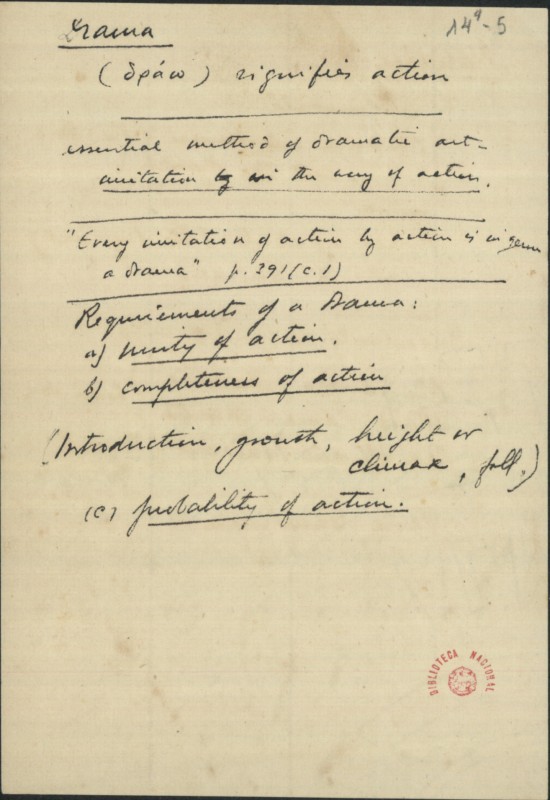 Drama
14A-5
(δράω) signifies action
essential method of dramatic art -
imitation by in the way of action.
"Every imitation of action by action is in germ
a drama" p. 391 (c.1)
Requirements of a Drama:
a) Unity of action.
b) completeness of action
(Introduction, growth, height or
climax, fall.)
(c) probability of action.
BIBLIOTECA NACIONAL